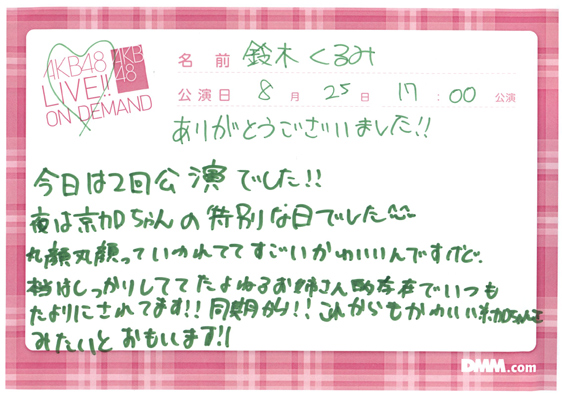 AKB48
LIVE!!
ON DEMAND
AKB
48
名前 鈴木くるみ
公演日 8月25日 17:00公演
ありがとうございました!!
今日は2回公演でした!!
夜は京加ちゃんの特別な日でした^^
丸顔丸顔っていわれててすごいかわいいんですけど、
根はしっかりしててたよれるお姉さん的存在でいつも
たよりにされてます!!同期から!!これからもかわいい京加ちゃんを
みたいとおもいます!!
DMM.com